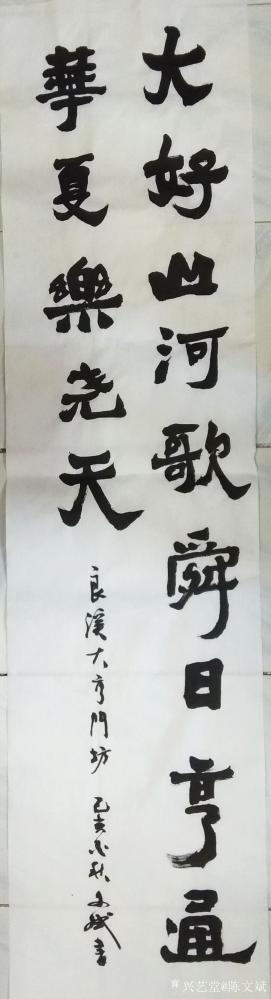 大好山河歌舜日亨通
華夏樂尧天
良溪大亨門坊 己亥秋文斌書
兴艺堂@陈文斌